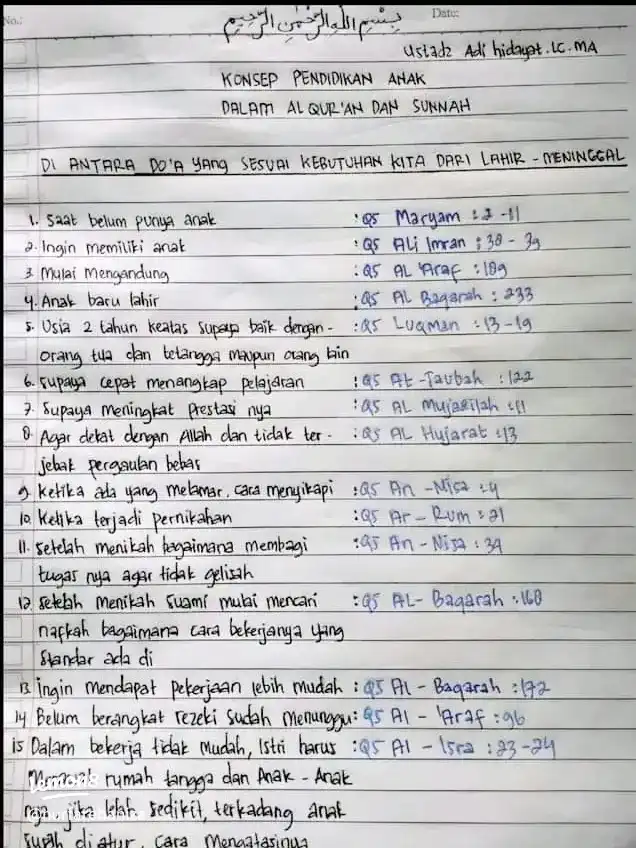 No.:
Date:
بسم الله الرحمن الرحيم
Ustadz Adi hidayat. LC. MA
KONSEP PENDIDIKAN ANAK
DALAM AL QUR'AN DAN SUNNAH
DI ANTARA DO'A YANG SESUAI KEBUTUHAN KITA DARI LAHIR - MENINGGAL
1. Saat belum punya anak : QS Maryam : 2 - 11
2. Ingin memiliki anak : QS Ali Imran : 38 - 39
3. Mulai Mengandung : QS AL 'Araf : 189
4. Anak baru lahir : QS AL Baqarah : 233
5. Usia 2 tahun keatas supaya baik dengan - : QS Luqman : 13 - 19
orang tua dan tetangga maupun orang lain
6. supaya cepat menangkap pelajaran : QS At - Taubah : 122
7. Supaya meningkat Prestasi nya : QS AL Mujadilah : 11
8. Agar dekat dengan Allah dan tidak ter - : QS AL Hujarat : 13
jebak pergaulan bebas
9. ketika ada yang melamar, cara menyikapi : QS An - Nisa : 4
10. Ketika terjadi pernikahan : QS Ar - Rum : 21
11. setelah menikah bagaimana membagi : QS An - Nisa : 34
tugas nya agar tidak gelisah
12. setelah menikah suami mulai mencari : QS AL - Baqarah : 168
nafkah bagaimana cara bekerjanya yang
standar ada di
13. Ingin mendapat pekerjaan lebih mudah : QS Al - Baqarah : 172
14 Belum berangkat rezeki sudah menunggu : QS Al - 'Araf : 96
15 Dalam bekerja tidak mudah, Istri harus : QS Al - Isra : 23 - 24
rumah tangga dan Anak - Anak
nya, jika lelah sedikit, terkadang anak
susah diatur, cara Mengatasinya